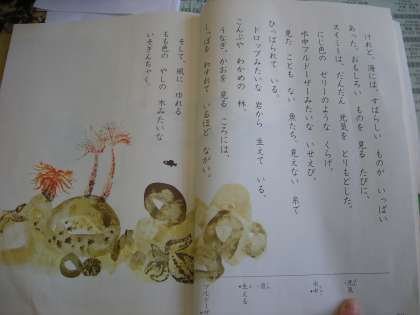 けれど、海には、すばらしい ものが いっぱい
あった。おもしろい ものを 見る たびに、
スイミーは、だんだん 元気を とりもどした。
にじ色の ゼリーのような くらげ。
水中ブルドーザーみたいな いせえび。
見た ことも ない 魚たち。見えない 糸で
ひっぱられて いる。
ドロップみたいな 岩から 生えて いる、
こんぶや わかめの 林。
うなぎ。かおを 見る ころには、
しっぽを わすれて いるほど ながい。
そして、風に ゆれる
もも色の やしの 木みたいな
いそぎんちゃく。
元気
水中
岩
生える